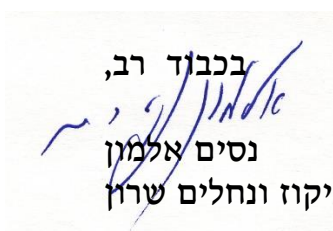 בכבוד רב,
נסים אלמון
יקוז ונחלים שרון